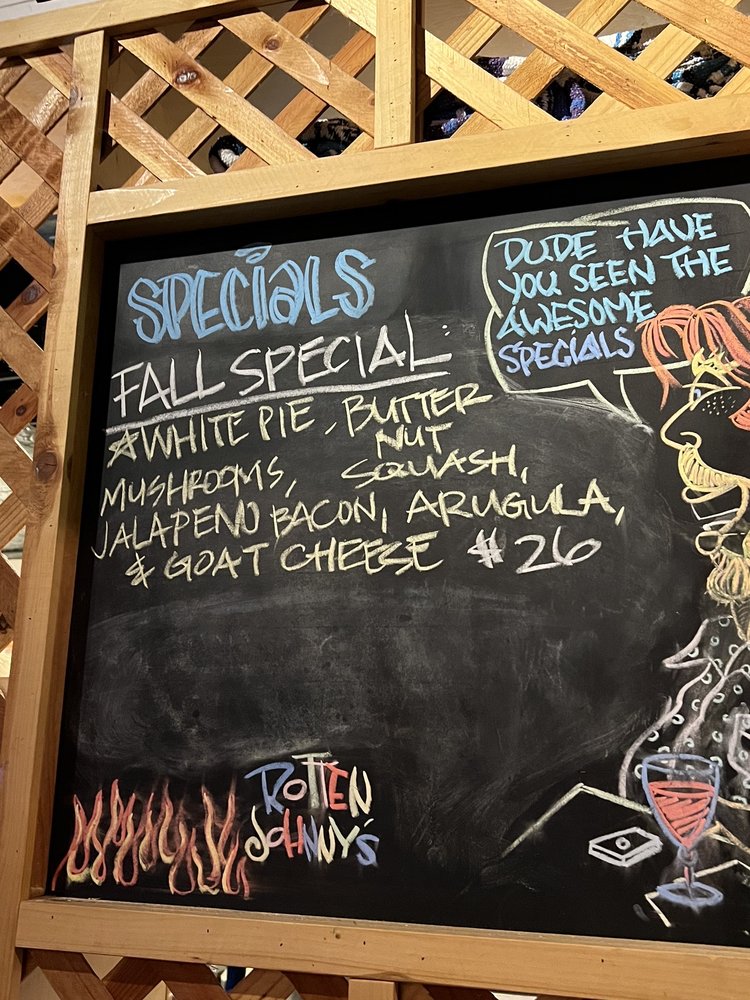 SPECiALS
FALL SPECIAL:
☆WHITE PIE, BUTTER
NUT
MUSHROOMS, SQUASH,
JALAPENO BACON, ARUGULA,
& GOAT CHEESE $26
DUDE HAVE
YOU SEEN THE
AWESOME
SPECIALS
ROTTEN
JOHNNY'S